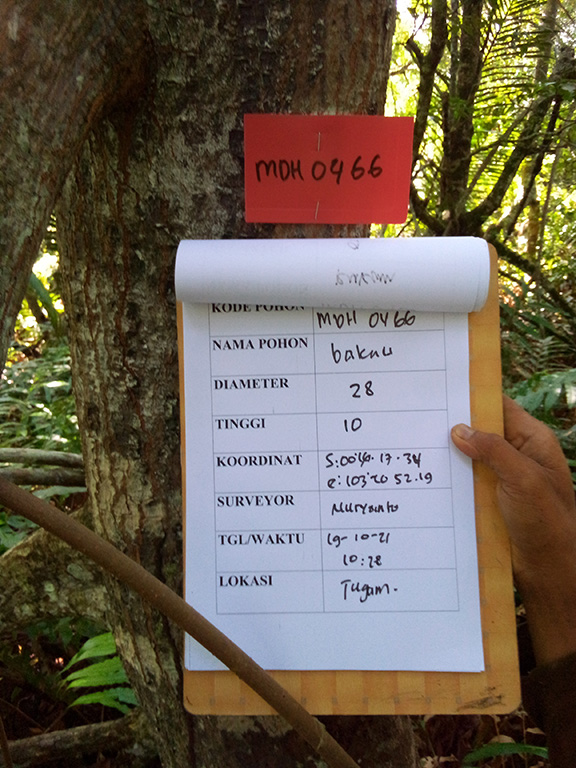 MDH 0466
KODE POHON MDH 0466
NAMA POHON bakau
DIAMETER 28
TINGGI 10
KOORDINAT S:00
e: 103 20 52.19
SURVEYOR
TGL/WAKTU 19-10-21
10:28
LOKASI Tugam.